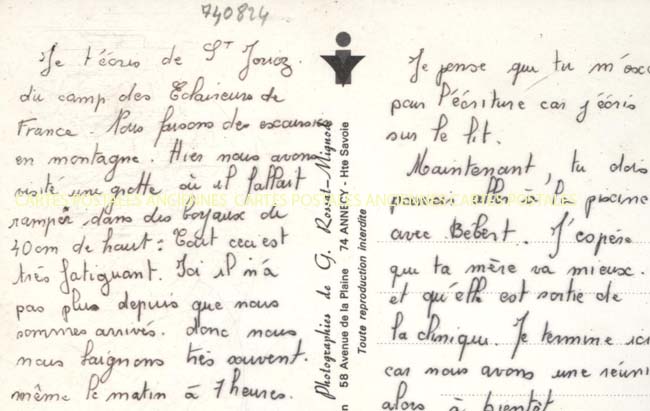 740824
Je t'écris de St Jorioz.
du camp des Eclaireurs de
France. Nous faisons des excursions
en montagne. Hier nous avons
visité une grotte où il fallait
ramper dans des boyaux de
40cm de haut : Tout ceci est
très fatiguant. Ici il n'a
pas plus depuis que nous
sommes arrivés. donc nous
nous baignons très souvent.
même le matin à 7 heures.
Photographies de G. Rosset-Mignod
58 Avenue de la Plaine 74 ANNECY - Hte Savoie
Toute reproduction interdite
Je pense que tu m'exc
pour l'écriture car j'écris
sur le lit.
Maintenant, tu dois
pouvoir aller à la piscine
avec Bébert. J'espère
que ta mère va mieux.
et qu'elle est sortie de
la clinique. Je termine ici
car nous avons une réuni
alors à bientôt
CARTES POSTALES ANCIENNES CARTES POSTALES ANCIENNES CARTES POSTALES